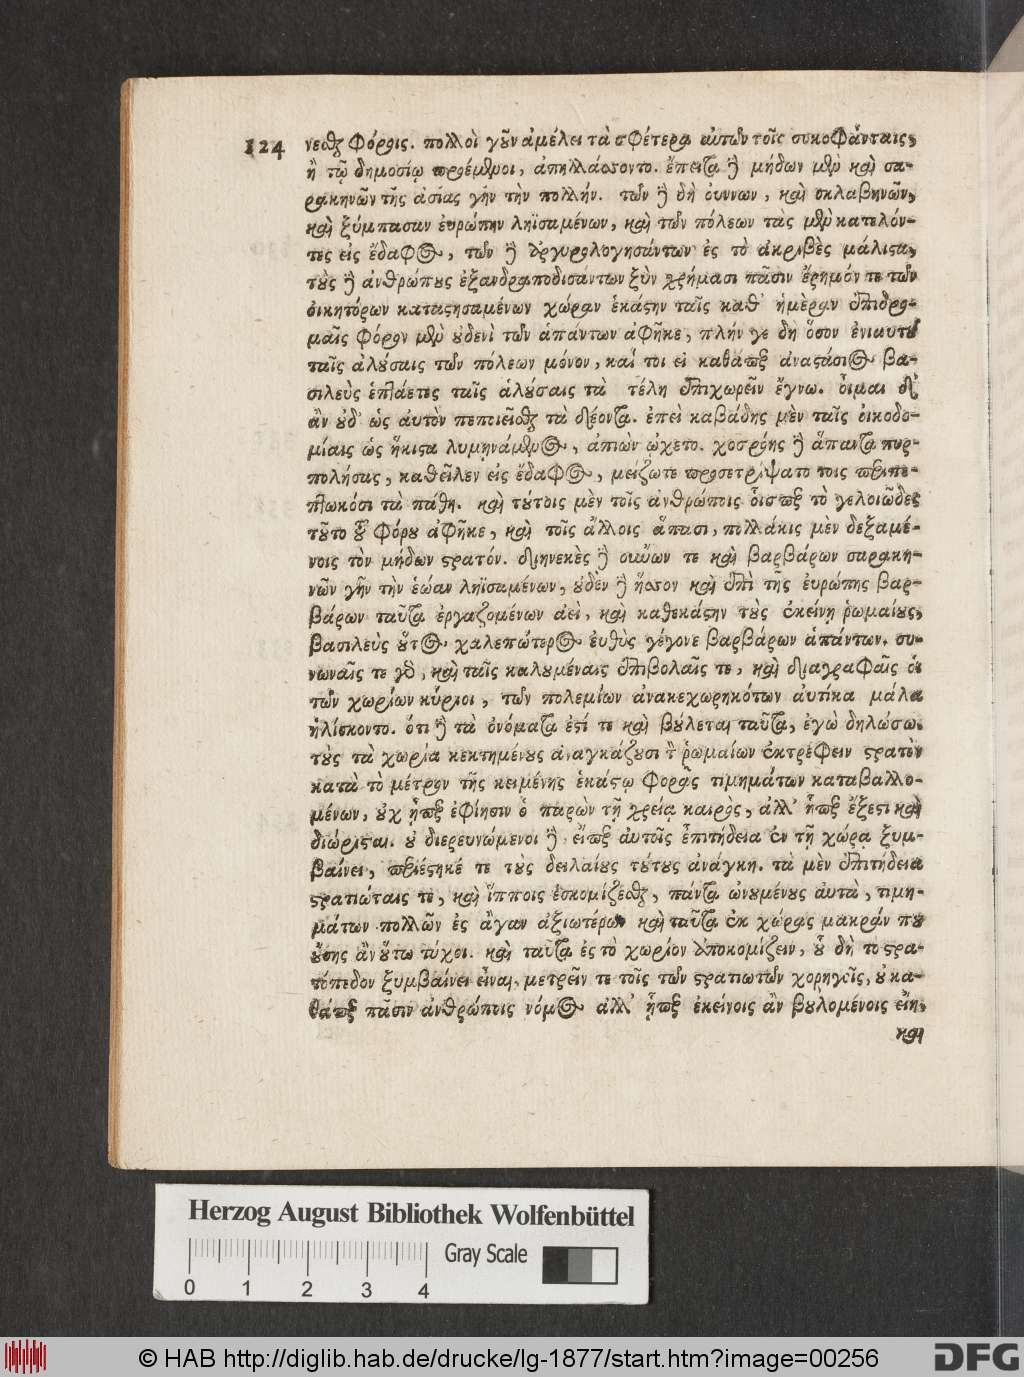 124 νεῖσθαι φόροις. πολλοὶ γοῦν ἀμέλει τὰ σφέτερα αὐτῶν τοῖς συκοφάνταις,
ἢ τῷ δημοσίῳ προέμενοι, ἀπηλλάσσοντο. ἔπειτα δὲ μήδων μὲν καὶ σα-
ρακηνῶν τῆς ἀσίας γῆν τὴν πολλήν. τῶν δὲ δὴ οὕννων, καὶ σκλαβηνῶν,
καὶ ξύμπασαν εὐρώπην ληϊσαμένων, καὶ τῶν πόλεων τὰς μὲν κατελόν-
τες εἰς ἔδαφος, τῶν δὲ ἀργυρολογησάντων ἐς τὸ ἀκριβὲς μάλιστα,
τοὺς δὲ ἀνθρώπους ἐξανδραποδισάντων ξὺν χρήμασι πᾶσιν ἔρημόν τε τῶν
οἰκητόρων καταστησαμένων χώραν ἑκάστην ταῖς καθ' ἡμέραν ἐπιδρο-
μαῖς φόρον μὲν οὐδενὶ τῶν ἁπάντων ἀφῆκε, πλήν γε δὴ ὅσον ἐνιαυτοῦ
ταῖς ἁλούσαις τῶν πόλεων μόνον, καί τοι εἰ καθάπερ ἀναστάσιος βα-
σιλεὺς ἑπτάετες ταῖς ἁλούσαις τὰ τέλη ἐπιχωρεῖν ἔγνω. οἶμαι δ'
ἂν οὐδ' ὡς αὐτὸν πεποιεῖσθαι τὰ δέοντα. ἐπεὶ καβάδης μὲν ταῖς οἰκοδο-
μίαις ὡς ἥκιστα λυμηνάμενος, ἀπιὼν ᾤχετο. χοσρόης δὲ ἅπαντα πυρ-
πολήσας, καθεῖλεν εἰς ἔδαφος, μείζω τε προσετρίψατο τοῖς περιπε-
πτωκόσι τὰ πάθη. καὶ τούτοις μὲν τοῖς ἀνθρώποις οἷσπερ τὸ γελοιῶδες
τοῦτο τοῦ φόρου ἀφῆκε, καὶ τοῖς ἄλλοις ἅπασι, πολλάκις μὲν δεξαμέ-
νοις τὸν μήδων στρατόν. διηνεκὲς δὲ οὕννων τε καὶ βαρβάρων σαρακη-
νῶν γῆν τὴν ἑῴαν ληϊσαμένων, οὐδὲν δὲ ἧσσον καὶ ἐπὶ τῆς εὐρώπης βαρ-
βάρων ταῦτα ἐργαζομένων ἀεὶ, καὶ καθεκάστην τοὺς ἐκείνῃ ῥωμαίους,
βασιλεὺς οὗτος χαλεπώτερος εὐθὺς γέγονε βαρβάρων ἁπάντων. συ-
νωναῖς τε γὰρ, καὶ ταῖς καλουμέναις ἐπιβολαῖς τε, καὶ διαγραφαῖς οἱ
τῶν χωρίων κύριοι, τῶν πολεμίων ἀνακεχωρηκότων αὐτίκα μάλα
ἡλίσκοντο. ὅτι δὲ τὰ ὀνόματα ἐστί τε καὶ βούλεται ταῦτα, ἐγὼ δηλώσω.
τοὺς τὰ χωρία κεκτημένους ἀναγκάζουσι τὸν ῥωμαίων ἐκτρέφειν στρατὸν
κατὰ τὸ μέτρον τῆς κειμένης ἑκάστῳ φορᾶς τιμημάτων καταβαλλο-
μένων, οὐχ ᾗπερ ἐφίησιν ὁ παρὼν τῇ χρείᾳ καιρὸς, ἀλλ' ᾗπερ ἔξεστι καὶ
διώρισται. οὐ διερευνώμενοι δὲ, εἴπερ αὐτοῖς ἐπιτήδεια ἐν τῇ χώρᾳ ξυμ-
βαίνει, περιέστηκέ τε τοὺς δειλαίους τούτους ἀνάγκη. τὰ μὲν ἐπιτήδεια
στρατιώταις τε, καὶ ἵπποις ἐσκομίζεσθαι, πάντα ὠνουμένους αὐτὰ, τιμη-
μάτων πολλῶν ἐς ἄγαν ἀξιωτέρων καὶ ταῦτα ἐκ χώρας μακράν που
οὔσης ἂν οὕτω τύχοι. καὶ ταῦτα ἐς τὸ χωρίον ἀποκομίζειν, οὗ δὴ τὸ στρα-
τόπεδον ξυμβαίνει εἶναι, μετρεῖν τε τοῖς τῶν στρατιωτῶν χορηγοῖς, οὐ κα-
θάπερ πᾶσιν ἀνθρώποις νόμος ἀλλ' ᾗπερ ἐκείνοις ἂν βουλομένοις εἴη,
καὶ
Herzog August Bibliothek Wolfenbüttel
Gray Scale
0 1 2 3 4
© HAB http://diglib.hab.de/drucke/lg-1877/start.htm?image=00256
DFG